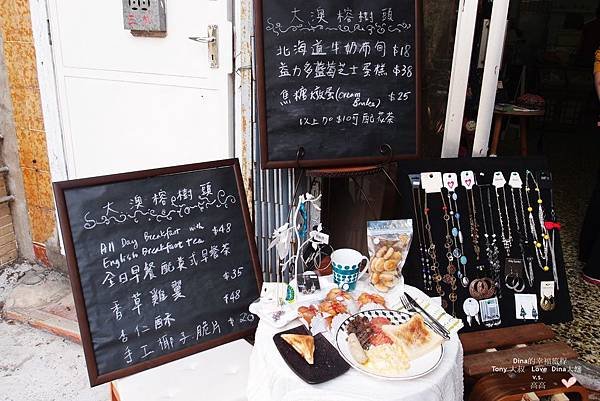 大澳榕樹頭
北海道牛奶布甸 $18
益力多藍莓芝士蛋糕 $38
焦糖燉蛋(Cream
$25
以上加$10可配花茶
大澳榕樹頭
All Day Breakfast with
English Breakfast tea $48
全日早餐配英式早餐茶
香草雞翼 $35
杏仁酥 $48
手工椰子脆片 $20
Dina的幸福旅程
Tony大叔 Love Dina大嬸
v.s.
高高